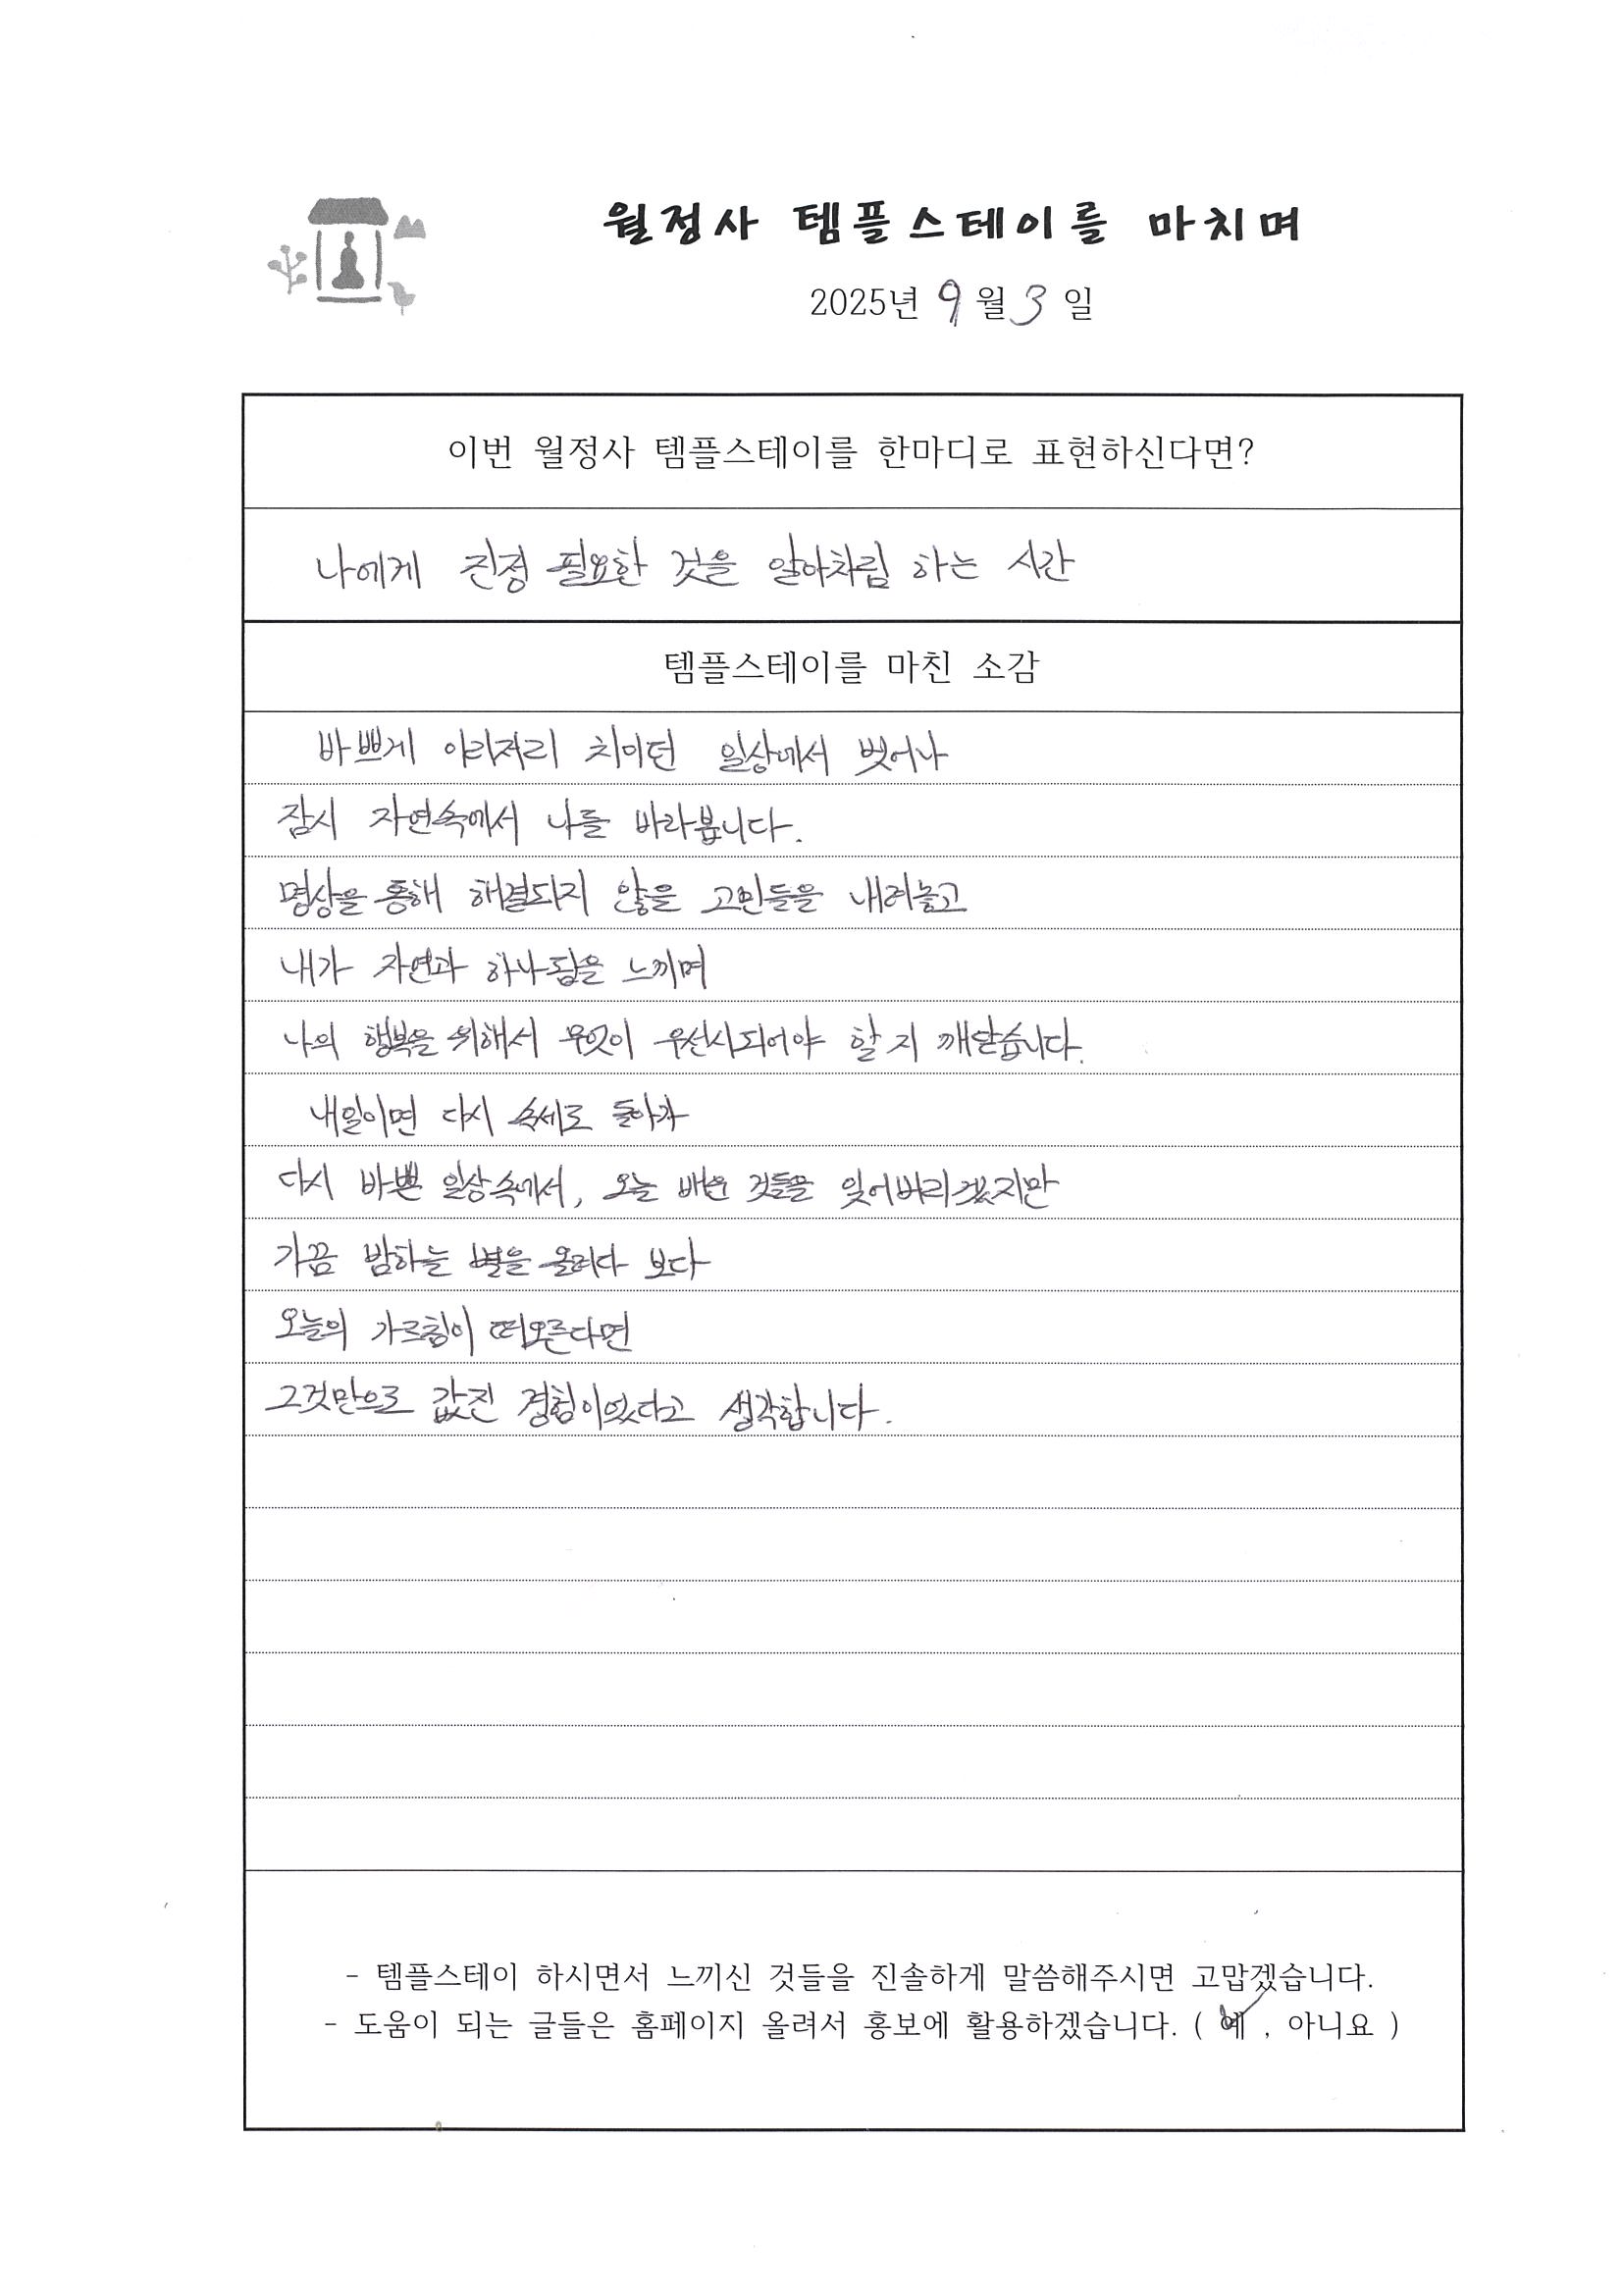 월정사 템플스테이를 마치며
2025년 9월 3일
이번 월정사 템플스테이를 한마디로 표현하신다면?
나에게 진정 필요한 것을 알아차림 하는 시간
템플스테이를 마친 소감
바쁘게 이리저리 치이던 일상에서 벗어나
잠시 자연속에서 나를 바라봅니다.
명상을 통해 해결되지 않을 고민들을 내려놓고
내가 자연과 하나됨을 느끼며
나의 행복을 위해서 무엇이 우선시되어야 할 지 깨닫습니다.
내일이면 다시 속세로 돌아가
다시 바쁜 일상속에서, 오늘 배운 것들을 잊어버리겠지만
가끔 밤하늘 별을 올려다 보다
오늘의 가르침이 떠오른다면
그것만으로 값진 경험이었다고 생각합니다.
- 템플스테이 하시면서 느끼신 것들을 진솔하게 말씀해주시면 고맙겠습니다.
- 도움이 되는 글들은 홈페이지 올려서 홍보에 활용하겠습니다. ( 예 , 아니요 )